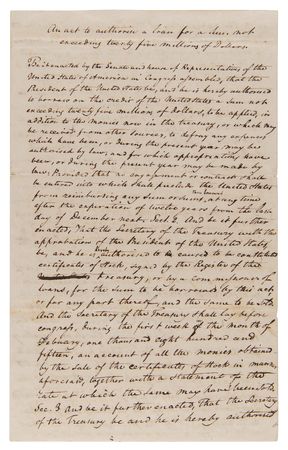 An act to authorise a loan for a sum not
exceeding twenty five millions of Dollars.
Be it enacted by the Senate and house of Representatives of the
United States of America in Congress assembled, that the
President of the United States be, and he is hereby authorised
to borrow on the credit of the United States a sum not
exceeding twenty five millions of dollars, to be applied, in
addition to the monies now in the treasury, or which may
be received from other sources, to defray any expences
which have been, or during the present year may be
authorised by law, and for which appropriations have
been, or during the present year may be made by
law: Provided that no engagement or contract shall
be entered into which shall preclude the United States
from reimbursing any sum or sums, at any time
after the expiration of twelve years from the last
day of december next. Sect. 2. And be it further
enacted, That the Secretary of the Treasury with the
approbation of the President of the United States
be, and he is authorised to cause to be constituted
certificates of stock, signed by the Register of the
Treasury, or by a commissioner of
loans, for the sum to be borrowed by this act
or for any part thereof, and the same to be sold.
And the Secretary of the Treasury shall lay before
congress, during the first week of the month of
February, one thousand eight hundred and
fifteen, an account of all the monies obtained
by the sale of the certificates of stock in manner
aforesaid, together with a statement of the
rate at which the same may have been sold
Sec. 3 and be it further enacted, That the Secretary
of the Treasury be and he is hereby authorised